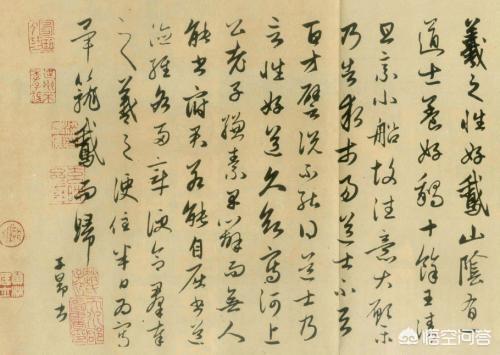 羲之性好鵞山陰有一
道士養好鵝十餘王清
旦乘小船故往意大願樂
乃告求市易道士不與
百方譬說不能得道士乃
言性好道久欲寫河上
公老子縑素早辦而無人
能書府君若能自屈書道
德經各兩章便合羣奉
之羲之便住半日為寫
畢籠鵞而歸
子昂書
悟空问答